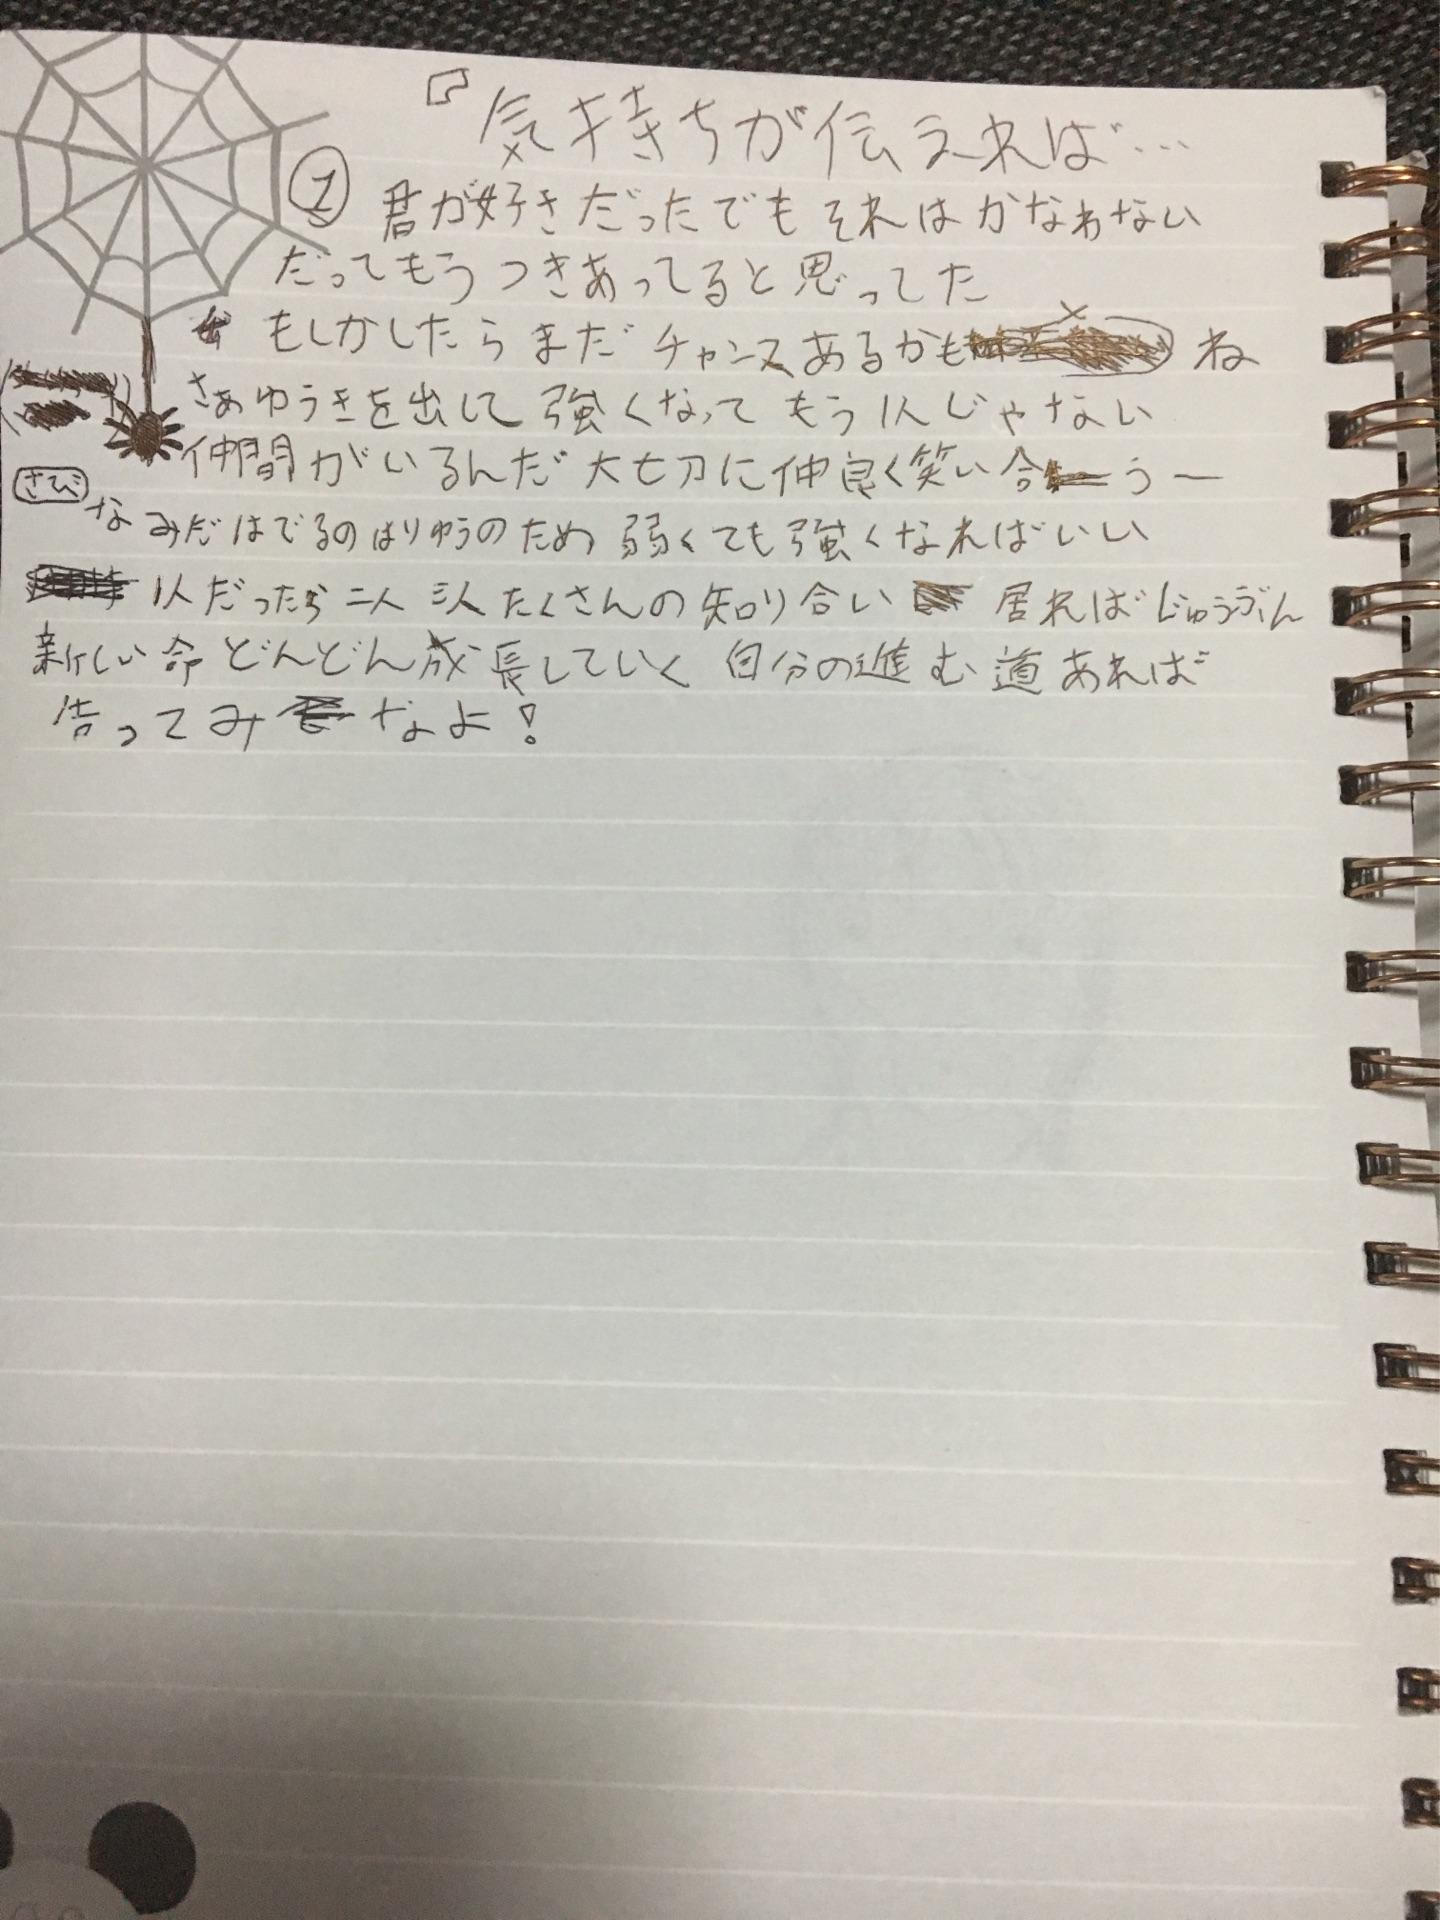 『気持ちが伝えれば…
① 君が好きだったでもそれはかなわない
だってもうつきあってると思ってた
もしかしたらまだチャンスあるかもね
さあゆうきを出して強くなってもう1人じゃない
仲間がいるんだ大切に仲良く笑い合うー
さび
なみだはでるのはりゆうのため弱くても強くなればいい
1人だったら二人三人たくさんの知り合い居ればじゅうぶん
新しい命どんどん成長していく自分の進む道あれば
告ってみなよ!